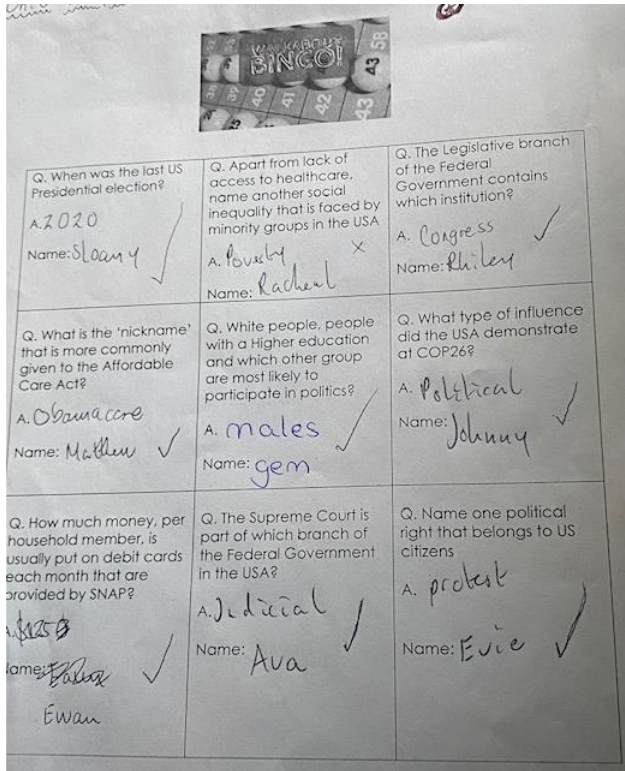 WALKABOUT
BINGO!
43 58
38
39
40
41
42
43
25
Q. When was the last US
Presidential election?
A. 2020
Name: Sloany
Q. Apart from lack of
access to healthcare,
name another social
inequality that is faced by
minority groups in the USA
A. Poverty
Name: Racheal
Q. The Legislative branch
of the Federal
Government contains
which institution?
A. Congress
Name: Rhiley
Q. What is the 'nickname'
that is more commonly
given to the Affordable
Care Act?
A. Obamacare
Name: Matthew
Q. White people, people
with a Higher education
and which other group
are most likely to
participate in politics?
A. males
Name: gem
Q. What type of influence
did the USA demonstrate
at COP26?
A. Political
Name: Johnny
Q. How much money, per
household member, is
usually put on debit cards
each month that are
provided by SNAP?
$125
Name:
Ewan
Q. The Supreme Court is
part of which branch of
the Federal Government
in the USA?
A. Judicial
Name: Ava
Q. Name one political
right that belongs to US
citizens
A. protest
Name: Evie